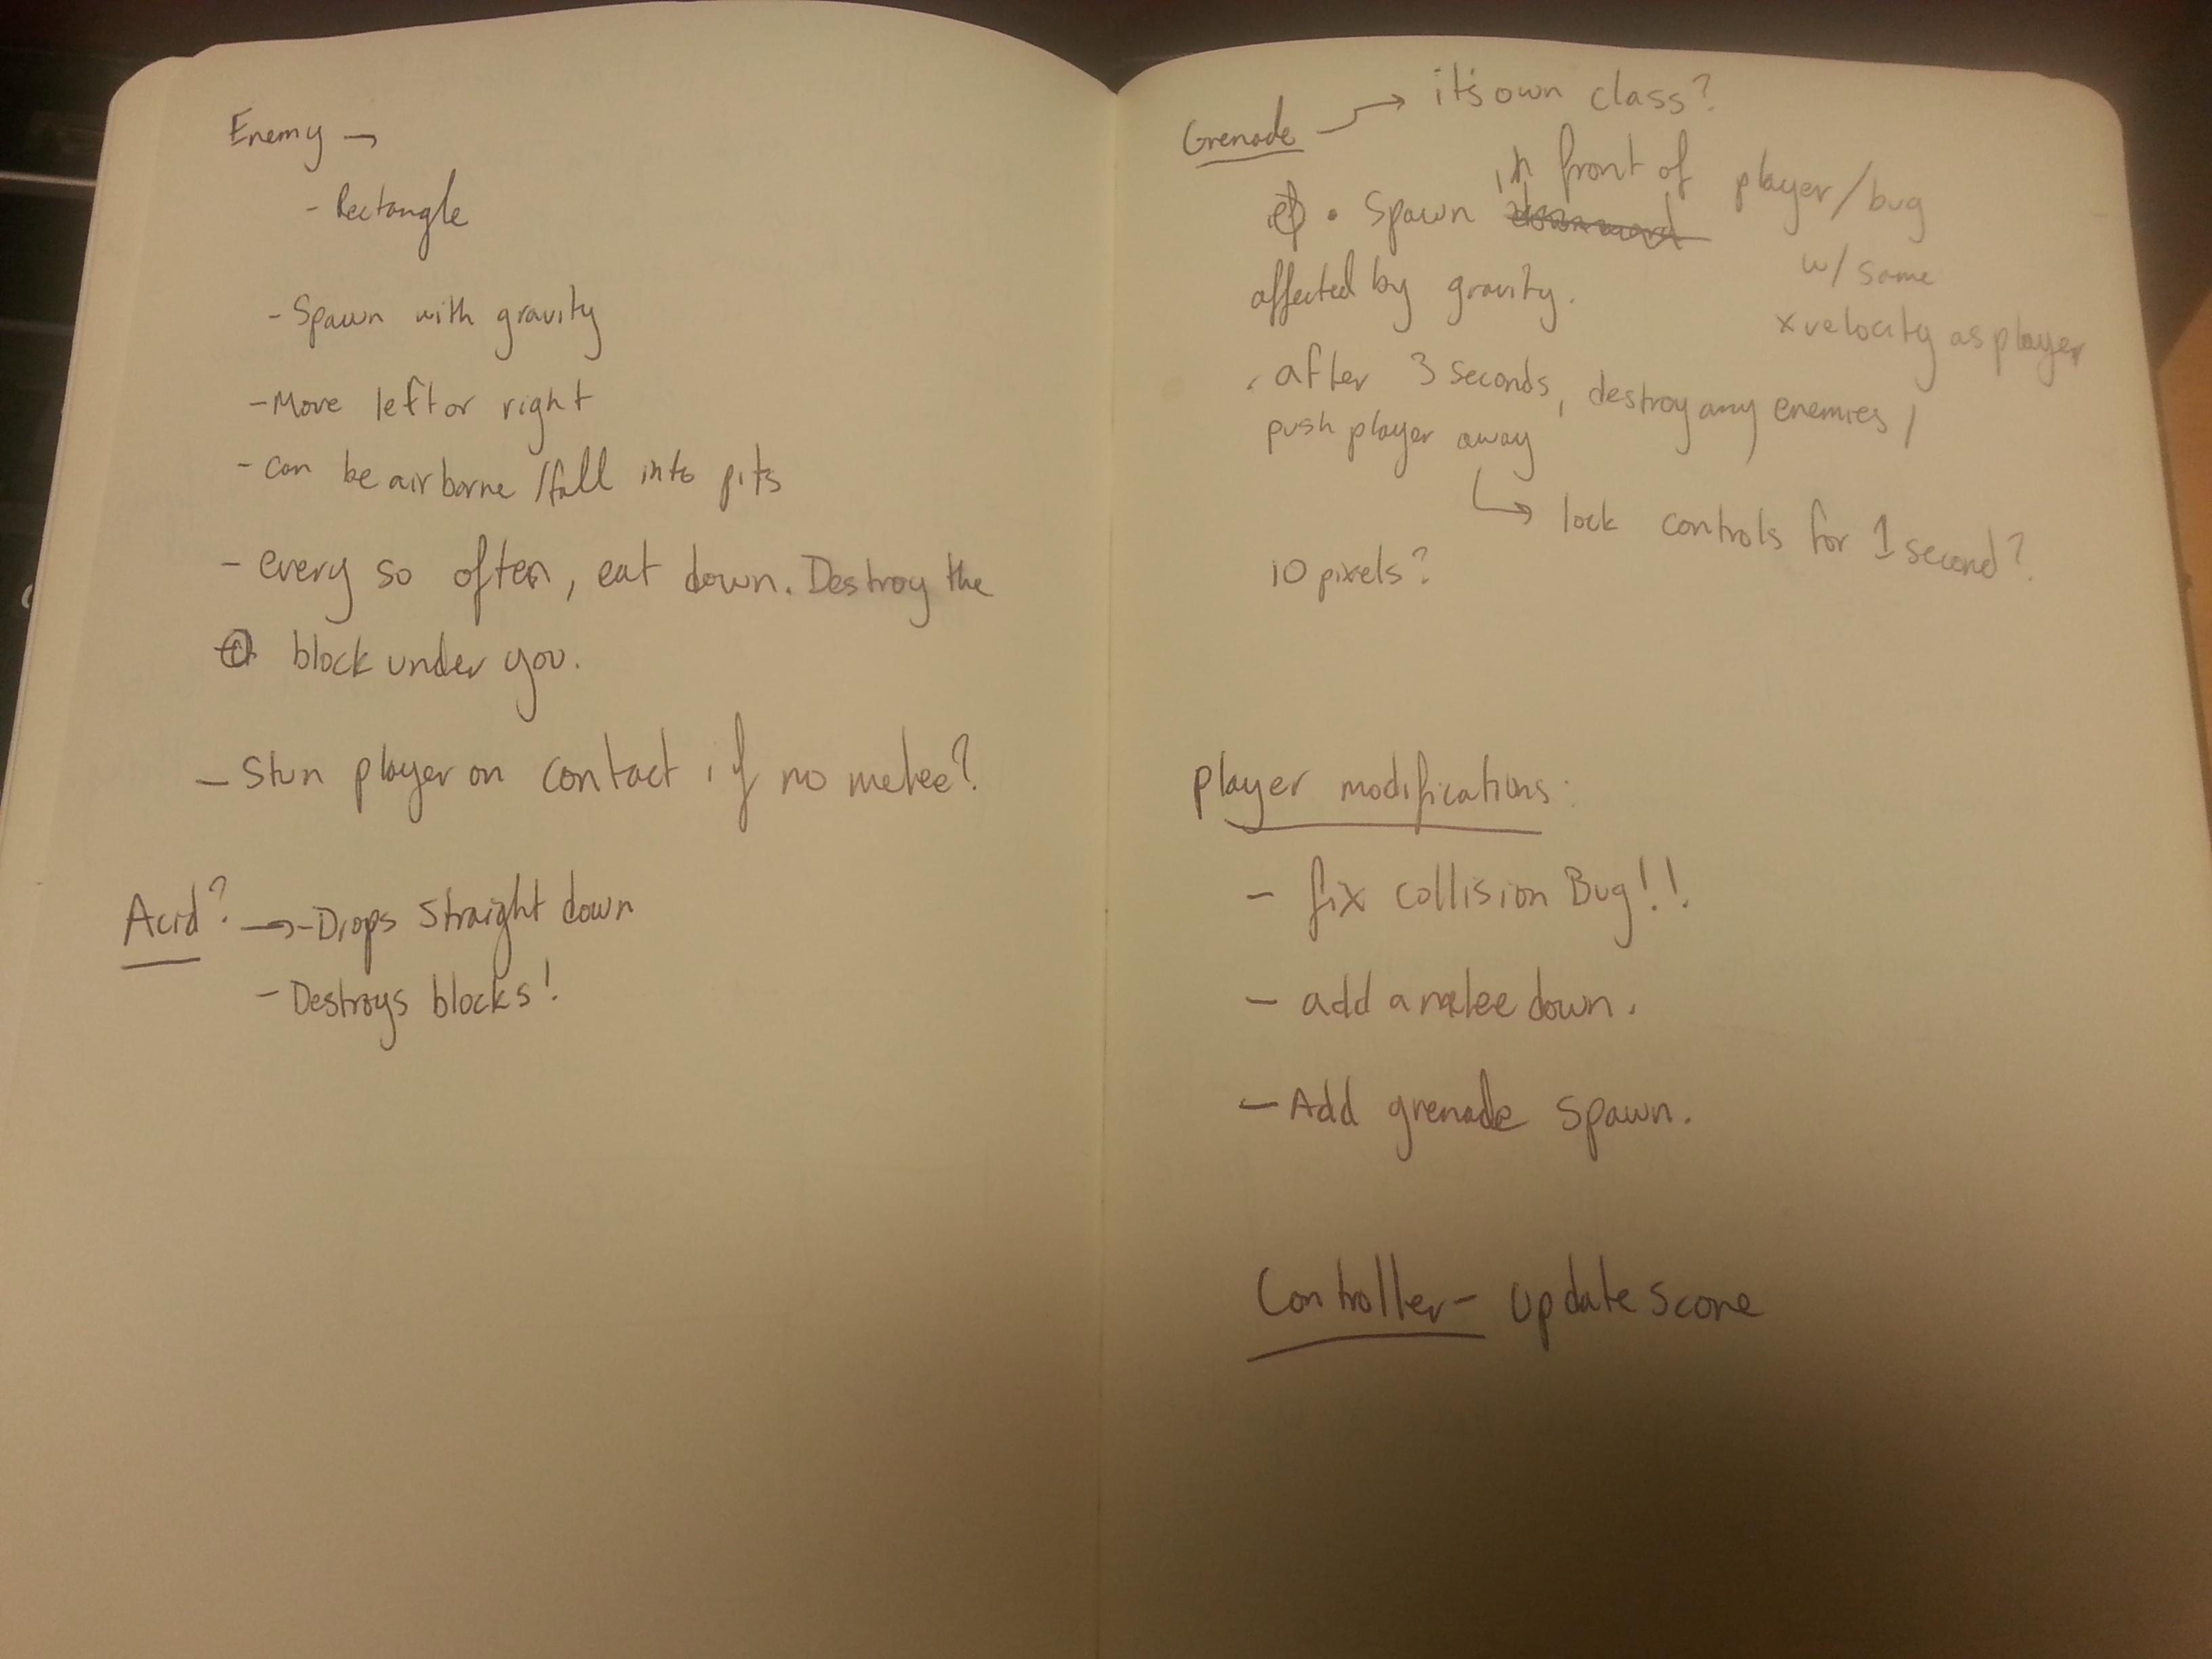 Enemy →
- Rectangle
- Spawn with gravity
- Move left or right
- can be airborne /fall into pits
- every so often, eat down. Destroy the
block under you.
- Stun player on contact if no melee?
Acid? → - Drops straight down
- Destroys blocks!
Grenade → it's own class?
• Spawn in front of player/bug
w/ same
x velocity as player
affected by gravity.
• after 3 seconds, destroy any enemies /
push player away
↳ lock controls for 1 second?
10 pixels?
player modifications:
- fix collision Bug!!
- add a melee down.
- Add grenade spawn.
Controller - update score